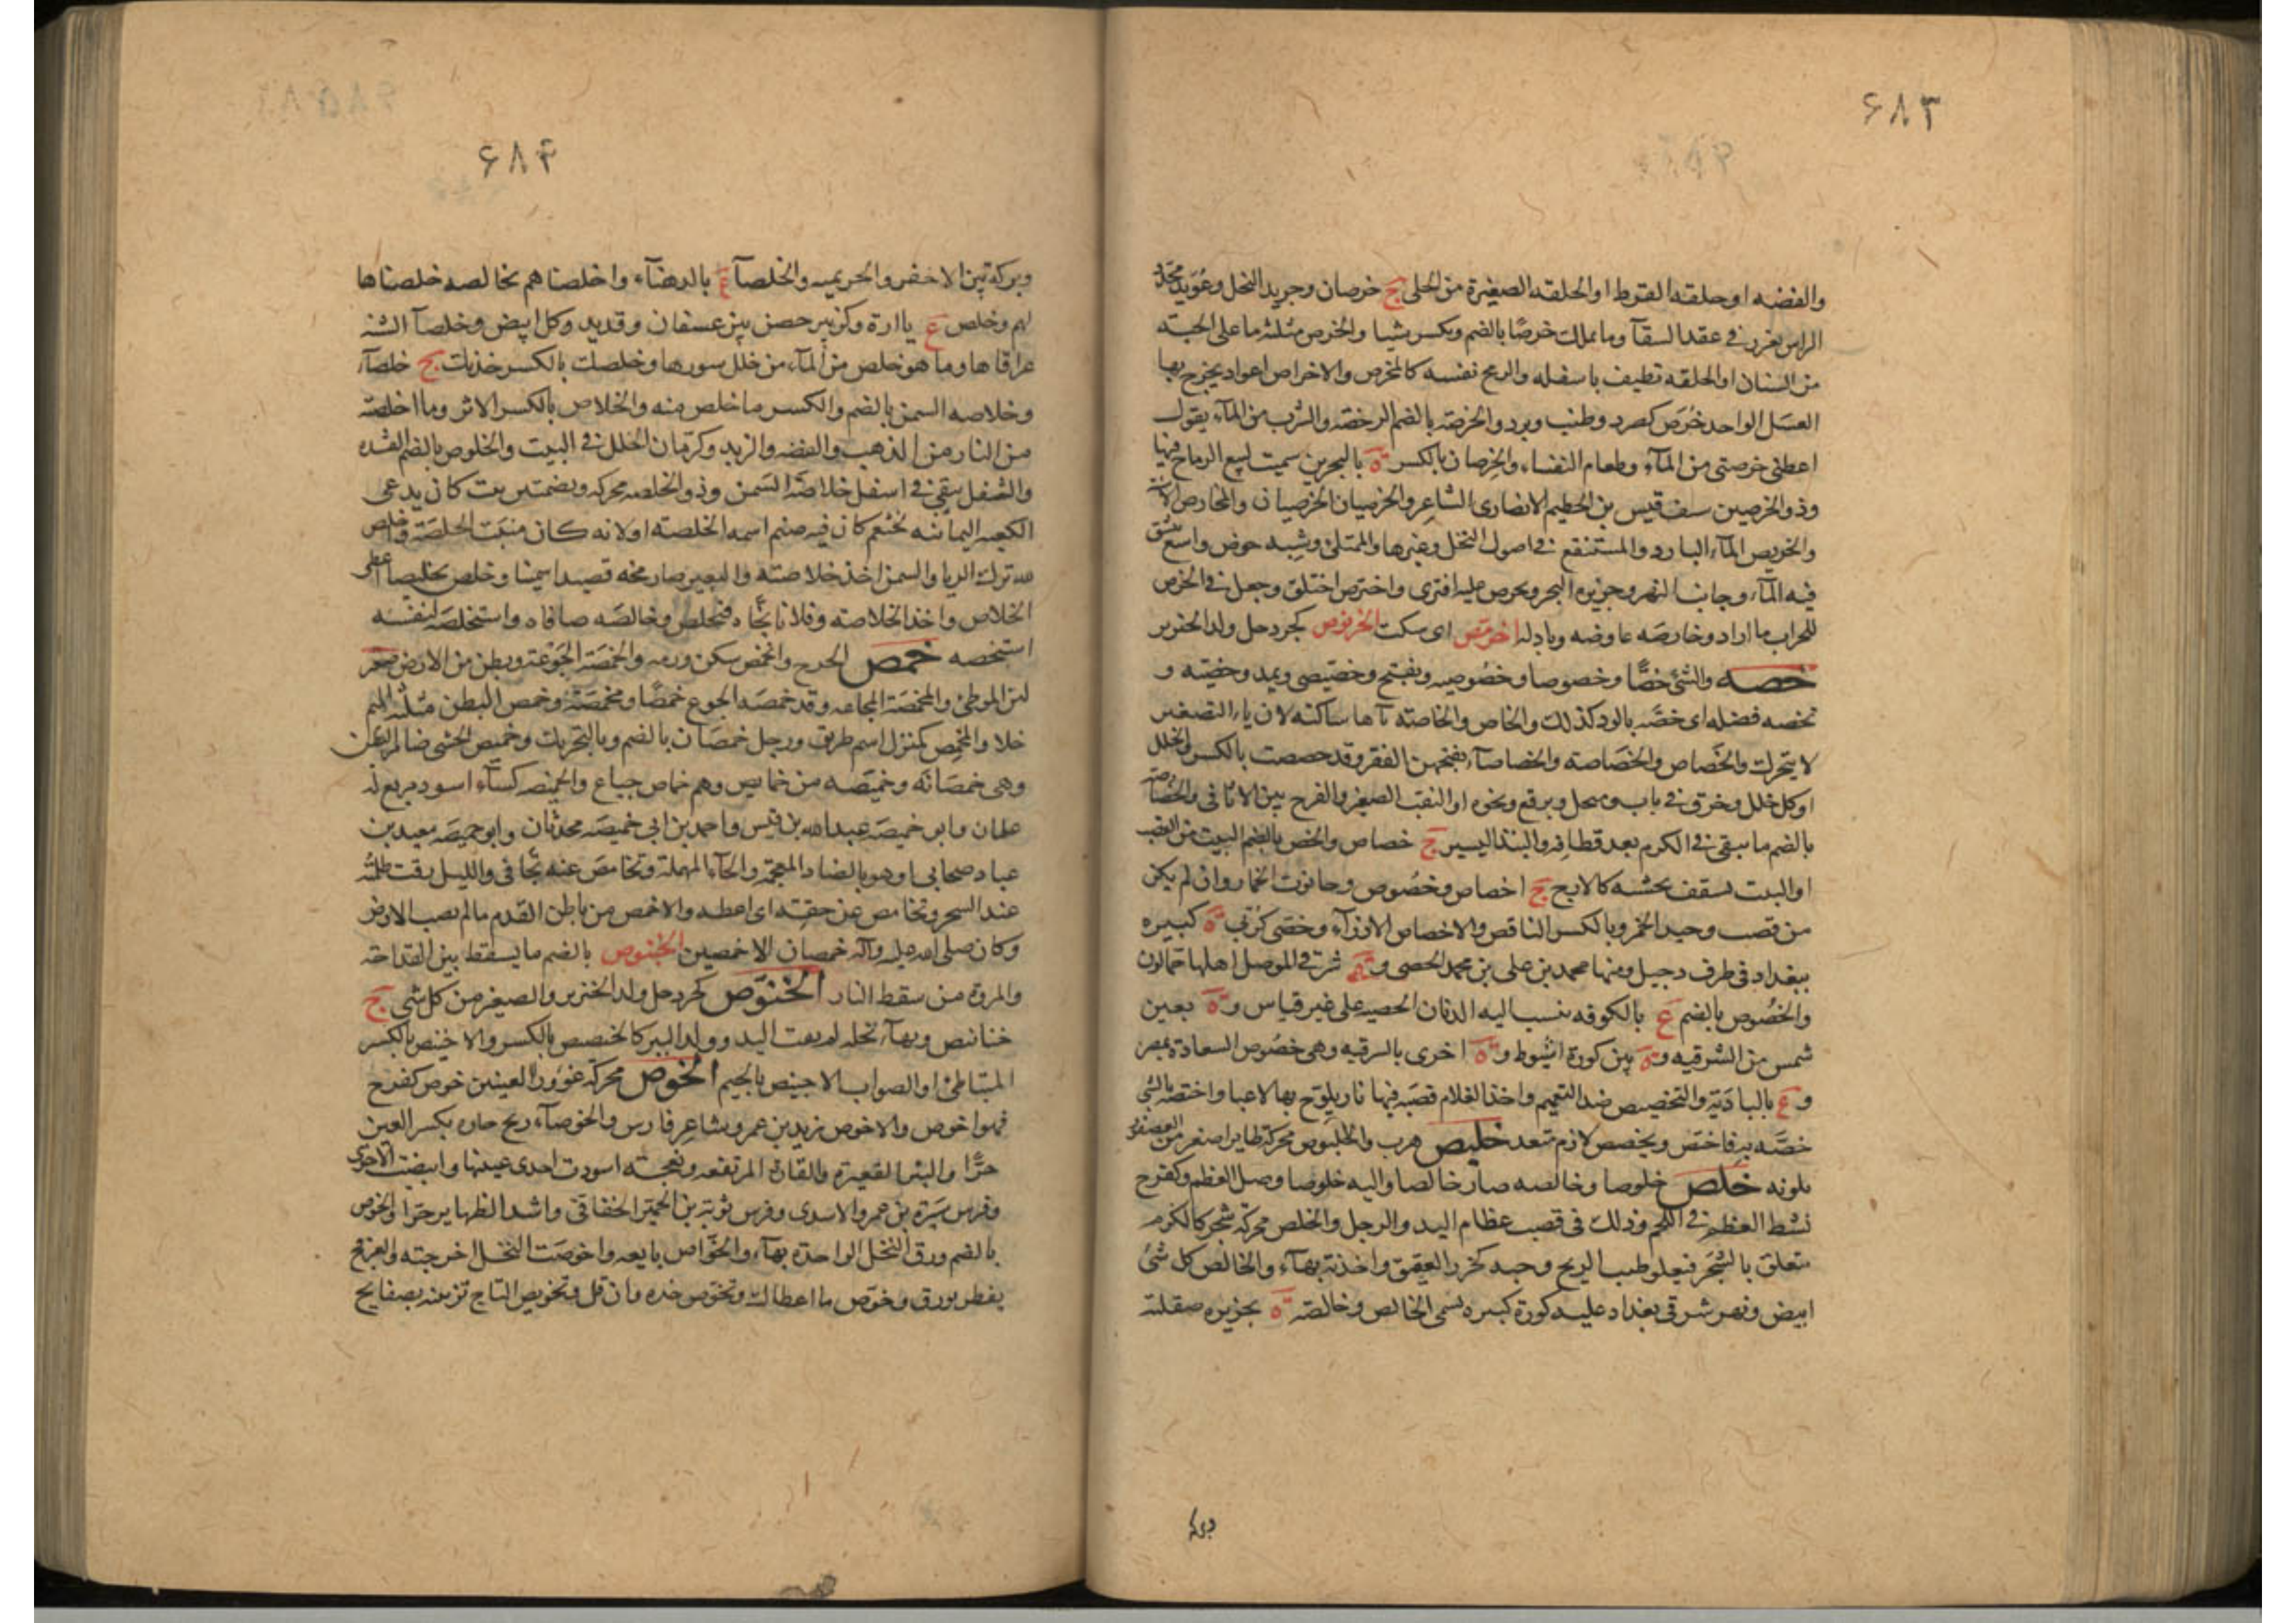 ۶۸۳
والفضه او حلقه القرط او الحلقه الصغيرة من الحلى ج خرصان وجريد النخل وعُوَيد محدّد
الراس يغرز فى عقد السقآ وما يملك خرصًا بالضم ويكسر شيا والخرص مثلثه ما على الجبة
من السنان او الحلقه تطيف باسفله والرمح نفسه كالمخرص والاخراص اعواد يخرج بها
العسَل الواحد خُرَص كصرد وطنب وبرد والخرصه بالضم الرخصة والشرب من المآء يقول
اعطنى خرصتى من المآء وطعام النفساء والخِرصان بالكسر ة بالبحرين سميت لبيع الرماح فيها
وذو الخرصين سيف قيس بن الخطيم الانصارى الشاعر والخرصيان الخرصيان والمخارص الاسنة
والخريص المآء البارد والمستنقع فى اصول النخل وغيرها والممتلئ وشبه حوض واسع ينبثق
فيه المآء وجانب النهر وجزيره البحر وتخرص عليه افترى واخترص اختلق وجعل فى الخرص
للجراب ما اراد وخارصَه عاوضه وبادله اخرمّص اى سكت الخرنوص كجردحل ولد الخنزير
خصه والشئ خصًّا وخصوصا وخصُوصيه ويفتح وخصّيصى ويمد وخصّيه و
تخصه فضله اى خصّه بالود كذلك والخاص والخاصة تآها ساكنه لان ياء التصغير
لا يتحرك والخَصاص والخَصاصة والخصاصآء بفتحهن الفقر وقد خصصت بالكسر والخلل
او كل خلل وخرق فى باب ومنخل وبرقع ونحوه او الثقب الصغير والفرج بين الاثافى والخصاصة
بالضم ما يبقى فى الكرم بعد قطافه والنبذ اليسير ج خصاص والخص بالضم البيت من القصب
او البيت يسقف بخشبه كالازج ج اخصاص وخصُوص وحانوت الخمار وان لم يكن
من قصب وجيد الخمر وبالكسر الناقص والاخصاص الازرآء وخصّى كرُبّى ة كبيره
ببغداد فى طرف دجيل ومنها محمد بن على بن محمد الخصى وة شرقى الموصل اهلها حمّالون
والخصُوص بالضم ع بالكوفه ينسب اليه الدنان الخصيه على غير قياس وة بعين
شمس من الشرقيه وة بين كورة اسُيوط وة اخرى بالشرقيه وهى خصُوص السعادة بمصر
وع بالبادية والتخصيص ضد التعميم واخذ الغلام قصَبَه فيها نار يلوّح بها لاعبا واختصّه بالشئ
خصَّه به فاختصّ وتخصص لازم متعد خلبص هرب والخلبوص محركة طاير اصغر من العصفور
بلونه خَلَصَ خلوصا وخالصه صار خالصا واليه خلوصا وصل العظم وكفرح
نشط العظم فى اللحم وذلك فى قصب عظام اليد والرجل والخلص محركة شجر كالكرم
يتعلق بالشجَر فيعلو طيب الريح وحبه كخرز العقيق واحدته بهآء والخالص كل شئ
ابيض ونهر شرقى بغداد عليه كورة كبيره تسمى الخالص وخالصة ة بجزيره صقلية
وبركة
۶۸۴
وبركة بين الاجفر والخريميه والخلصآ ع بالدهنآء واخلصناهم بخالصه خلصناها
لهم وخلص ع بآارة وكزبير حصن بين عسفان وقديد وكل ابيض وخلصآ الشنه
عراقاها وما هو خلص من المآء من خلل سيورها وخلصك بالكسر خدنك ج خلصآء
وخلاصه السمن بالضم والكسر ما خلص منه والخلاص بالكسر الاثر وما اخلصته
من النار من الذهب والفضه والزبد وكرمّان الخلل فى البيت والخلوص بالضم القشده
والثفل يبقى فى اسفل خلاصة السّمن وذو الخلصه محركه وبضمتين بيت كان يدعى
الكعبه اليمانيه لخثعم كان فيه صنم اسمه الخلصه او لانه كان منبت الخلصَة واخلص
لله ترك الريا والسمن اخذ خلاصته والبعير صار مخه قصيدا سمينا وخلص تخليصا اعطى
الخلاص واخذ الخلاصته وفلانا نجّاه فتخلص وخالصَه صافاه واستخلصَه لنفسَه
استخصه خمص الجرح وانخمص سكن ورمه والخمصَة الجَوْعة وبطن من الارض صغير
لين الموطئ والمخمصَة المجاعه وقد خمصَه الجوع خمصًا ومخمصَة وخمص البطن مثلثة الميم
خلا والمخمِص كمنزل اسم طريق ورجل خمصَان بالضم وبالتحريك وخميص الحشى ضامر البطن
وهى خمصَانه وخميصَه من خمايص وهم خماص جياع والخميصه كسآء اسود مربع له
علمان وابو خميصَه عبد الله بن قيس واحمد بن ابى خميصَه محدثان وابو خميصَه معبد بن
عباد صحابى او هو بالضاد المعجمة والحآء المهملة وتخامصَ عنه تجافى والليل رقت ظلمته
عند السحر وتخامص عن حقّه اى اعطه والاخمص من باطن القدم ما لم يصب الارض
وكان صلى الله عليه وآله خمصان الاخمصين الخنبوص بالضم ما يسقط بين القداحه
والمروة من سقط النار الخنوّص كجردحل ولد الخنزير والصغير من كل شى ج
خنانيص وبهآء نخله لم يفت اليد وولد الببر كالخصيص بالكسر والاخنيص بالكسر
المتباطئ او الصواب الاجنيص بالجيم الخوص محركة غؤور العينين خوص كفرح
فهو اخوص والاخوص زيد بن عمرو شاعر فارس والخوصآء ريح حاره بكسر العين
حرًّا والبئر القعيرة والقارة المرتفعه ونعجة اسودت احدى عينيها وابيضت الاخرى
وفرس سَبرَة بن عمرو الاسدى وفرس توبة بن الحميّر الخفاجى واشد الظهاير حرّا والخوص
بالضم ورق النخل الواحدة بهآء والخوّاص بايعه واخوصَت النخل اخرجته والعرفج
يفطر بورق وخوّص ما اعطاك وتخوّص خذه وان قل وتخويص التاج تزيينه بصفايح